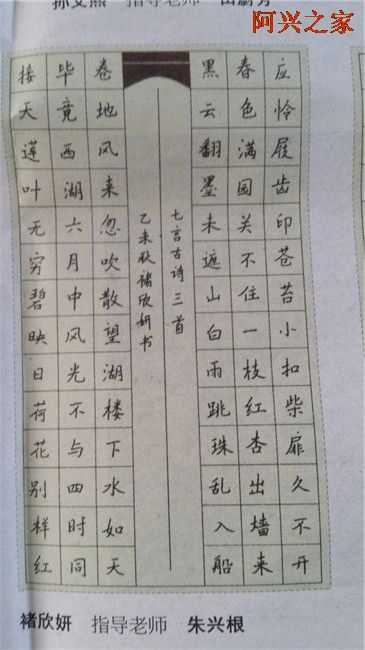 指导老师
阿兴之家
应怜屐齿印苍苔小扣柴扉久不开
春色满园关不住一枝红杏出墙来
黑云翻墨未遮山白雨跳珠乱入船
七言古诗三首
乙未秋褚欣妍书
卷地风来忽吹散望湖楼下水如天
毕竟西湖六月中风光不与四时同
接天莲叶无穷碧映日荷花别样红
褚欣妍 指导老师 朱兴根